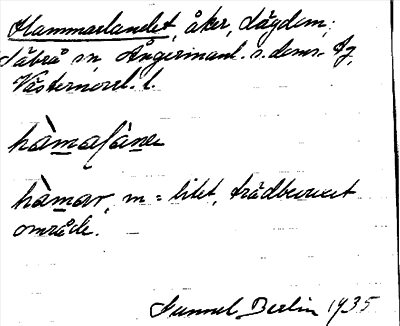 Hammarlandet, åker, Lågdom;
Säbrå sn Ångermanl. s. doms. dg,
Västernorrl. l.
hàmaḷàne
hàmar, m = litet, trädbevuxet
område.
Gunnel Berlin 1935